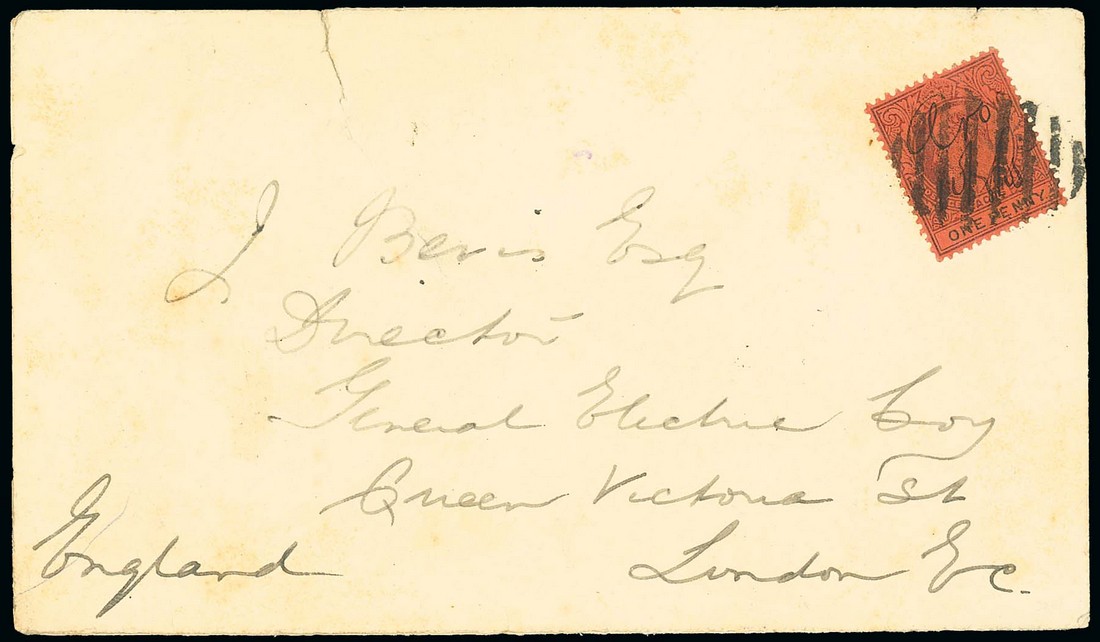 J Bevis Esq
Director
General Electric Coy
Queen Victoria St
London Ec.
England
ONE PENNY